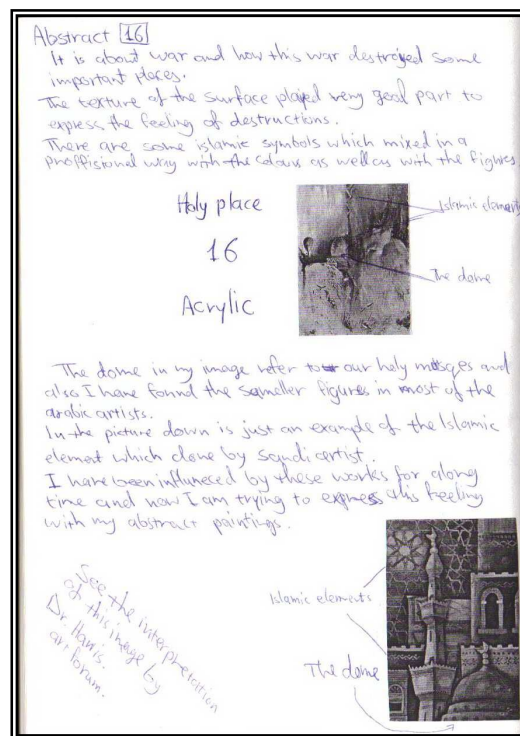 Abstract 16
It is about war and how this war destroyed some
important places.
The texture of the surface played very good part to
express the feeling of destructions.
There are some islamic symbols which mixed in a
proffisional way with the colours as well as with the figures.
Holy place
16
Acrylic
Islamic elements
The dome
The dome in my image refer to our holy mosqes and
also I have found the sameller figures in most of the
arabic artists.
In the picture down is just an example of the Islamic
element which done by saudi artist.
I have been influnesed by these works for along
time and now I am trying to express this feeling
with my abstract paintings.
See the interpretation
of this image by
Dr. Harris.
art forum.
Islamic elements
The dome